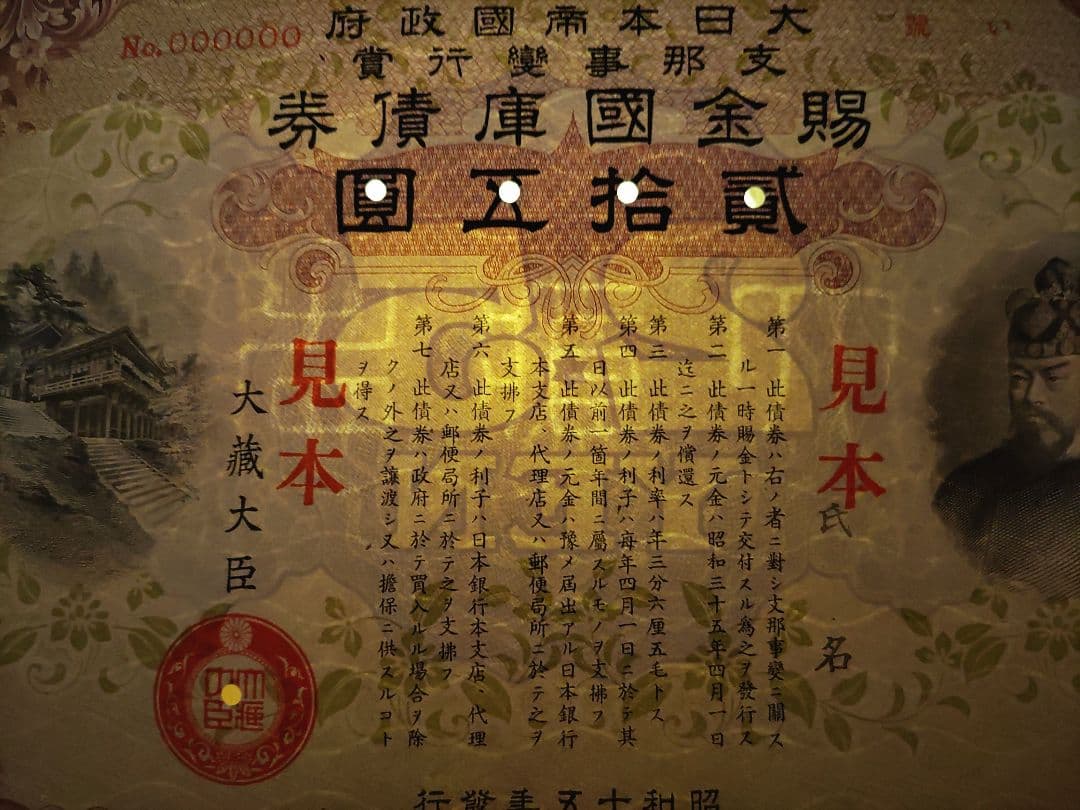 い
號
No. 000000
大日本帝國政府
支那事變行賞
賜金國庫債券
貳拾五圓
見本
氏名
第一 此債券ハ右ノ者ニ對シ支那事變ニ關ス
ル一時賜金トシテ交付スル爲之ヲ發行ス
第二 此債券ノ元金ハ昭和三十五年四月一日
迄ニ之ヲ償還ス
第三 此債券ノ利率ハ年三分六厘五毛トス
第四 此債券ノ利子ハ每年四月一日ニ於テ其
日以前一箇年間ニ屬スルモノヲ支拂フ
第五 此債券ノ元金ハ豫メ屆出アル日本銀行
本支店、代理店又ハ郵便局所ニ於テ之ヲ
支拂フ
第六 此債券ノ利子ハ日本銀行本支店、代理
店又ハ郵便局所ニ於テ之ヲ支拂フ
第七 此債券ハ政府ニ於テ買入ルル場合ヲ除
クノ外之ヲ讓渡シ又ハ擔保ニ供スルコト
ヲ得ス
見本
大藏大臣
昭和十五年發行